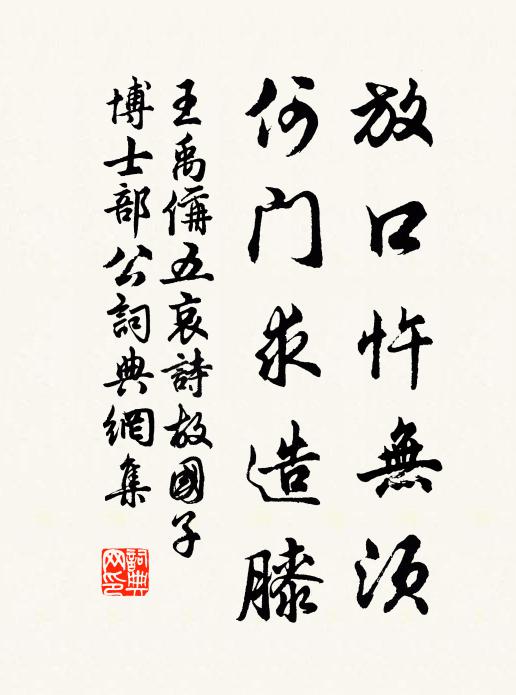 放口忤無須
何門求造膝
王禹偁五哀詩故國子
博士部公詞典網集
詞典
网印